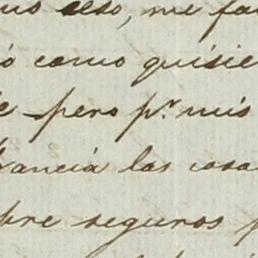 eso, me fa
ó como quisie
e pero pr. mis
rancia las cosa
bre seguros p